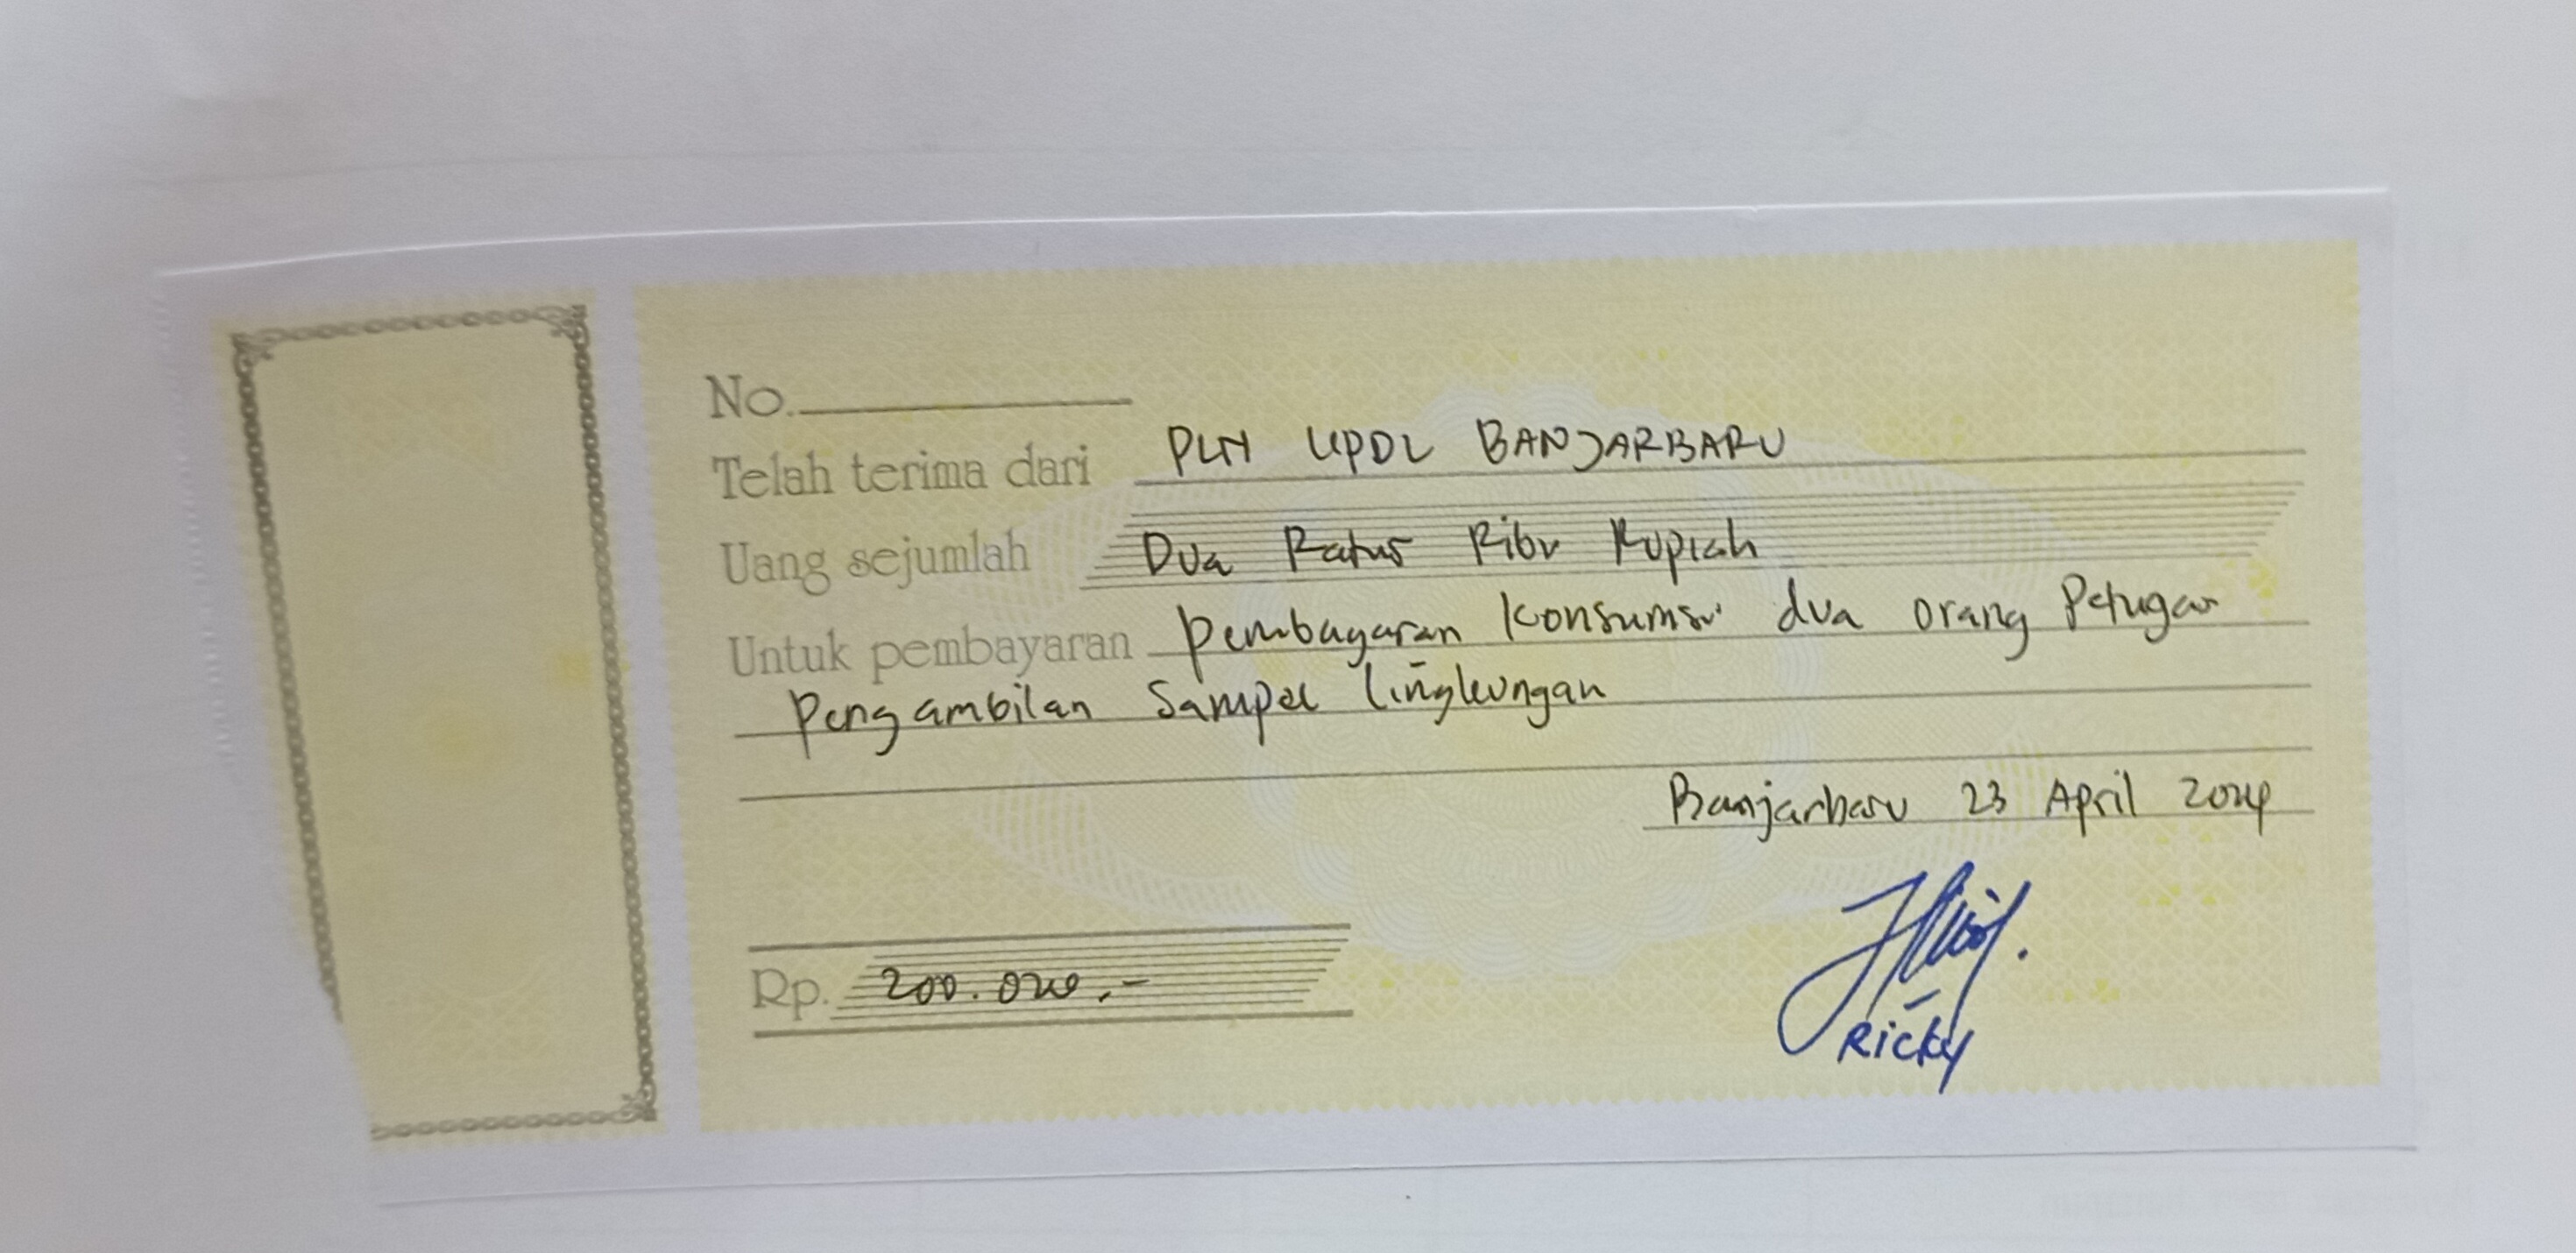 No.
Telah terima dari PLN UPDL BANJARBARU
Uang sejumlah Dua Ratus Ribu Rupiah
Untuk pembayaran Pembayaran Konsumsi dua orang Petugas
Pengambilan Sampel lingkungan
Banjarbaru 23 April 2024
Rp. 200.000,-
Ricky